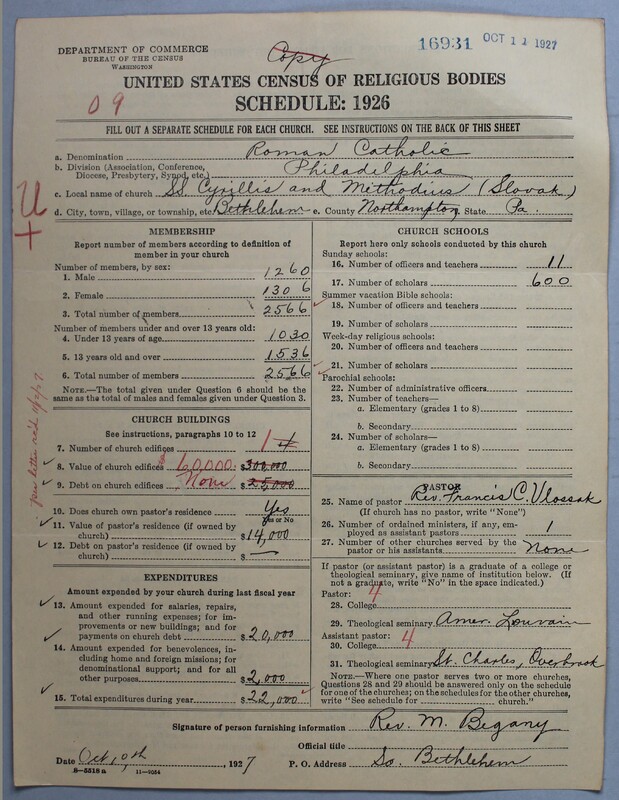 16931 OCT 11 1927
DEPARTMENT OF COMMERCE
BUREAU OF THE CENSUS
WASHINGTON
Copy
UNITED STATES CENSUS OF RELIGIOUS BODIES
09
SCHEDULE: 1926
FILL OUT A SEPARATE SCHEDULE FOR EACH CHURCH. SEE INSTRUCTIONS ON THE BACK OF THIS SHEET
a. Denomination Roman Catholic
b. Division (Association, Conference, Diocese, Presbytery, Synod, etc.) Philadelphia
c. Local name of church SS. Cyrillis and Methodius (Slovak)
d. City, town, village, or township, etc. Bethlehem e. County Northampton State Pa.
U
+
MEMBERSHIP
Report number of members according to definition of
member in your church
Number of members, by sex:
1. Male 1260
2. Female 1306
3. Total number of members 2566
Number of members under and over 13 years old:
4. Under 13 years of age 1030
5. 13 years old and over 1536
6. Total number of members 2566
NOTE.—The total given under Question 6 should be
the same as the total of males and females given under Question 3.
CHURCH BUILDINGS
See instructions, paragraphs 10 to 12
7. Number of church edifices 1 4
8. Value of church edifices 60,000 $300,000
9. Debt on church edifices None $25,000
10. Does church own pastor's residence? Yes
Yes or No
11. Value of pastor's residence (if owned by
church) $14,000
12. Debt on pastor's residence (if owned by
church) $ —
EXPENDITURES
Amount expended by your church during last fiscal year
13. Amount expended for salaries, repairs,
and other running expenses; for im-
provements or new buildings; and for
payments on church debt $20,000
14. Amount expended for benevolences, in-
cluding home and foreign missions; for
denominational support; and for all
other purposes $2,000
15. Total expenditures during year $22,000
CHURCH SCHOOLS
Report here only schools conducted by this church
Sunday schools:
16. Number of officers and teachers 11
17. Number of scholars 600
Summer vacation Bible schools:
18. Number of officers and teachers
19. Number of scholars
Week-day religious schools:
20. Number of officers and teachers
21. Number of scholars
Parochial schools:
22. Number of administrative officers
23. Number of teachers—
a. Elementary (grades 1 to 8)
b. Secondary
24. Number of scholars—
a. Elementary (grades 1 to 8)
b. Secondary
PASTOR
25. Name of pastor Rev. Francis C. Vlossak
(If church has no pastor, write "None")
26. Number of ordained ministers, if any, em-
ployed as assistant pastors 1
27. Number of other churches served by the
pastor or his assistants None
If pastor (or assistant pastor) is a graduate of a college or
theological seminary, give name of institution below. (If
not a graduate, write "No" in the space indicated.)
Pastor: 4
28. College
29. Theological seminary Amer. Louvain
Assistant pastor: 4
30. College
31. Theological seminary St. Charles, Overbrook
NOTE.—Where one pastor serves two or more churches,
Questions 28 and 29 should be answered only on the schedule
for one of the churches; on the schedules for the other churches,
write "See schedule for church."
Signature of person furnishing information Rev. M. Begany
Official title
Date Oct. 9th, 1927 P. O. Address So. Bethlehem
8—5518a 11—9054